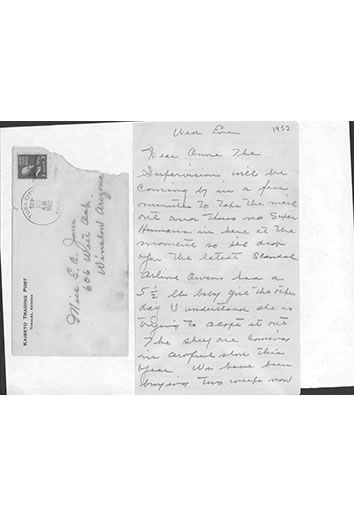 KAIBETO TRADING POST
TONALEA, ARIZONA
SEP
2
AM
1952
Miss E. A. Jones
606 West Oak
Winslow Arizona
Wed Eve
1952
Dear Anne The
Supervision will be
Coming by in a few
minutes to take the mail
out and theres no Super
Humans in here at the
moment so Ill drop
you the latest Scandal
Arline Owens had a
5½ lb baby girl the other
day I understand she is
trying to adopt it out
The sheep are coming
in awful slow this
year. We have been
buying two weeks now